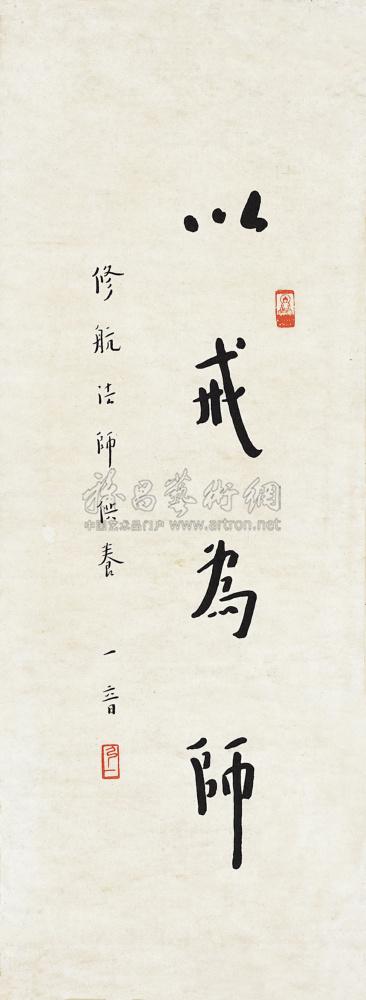 以戒為師
修航法師供養 一音
雅昌藝術網
中国艺术品门户 www.artron.net